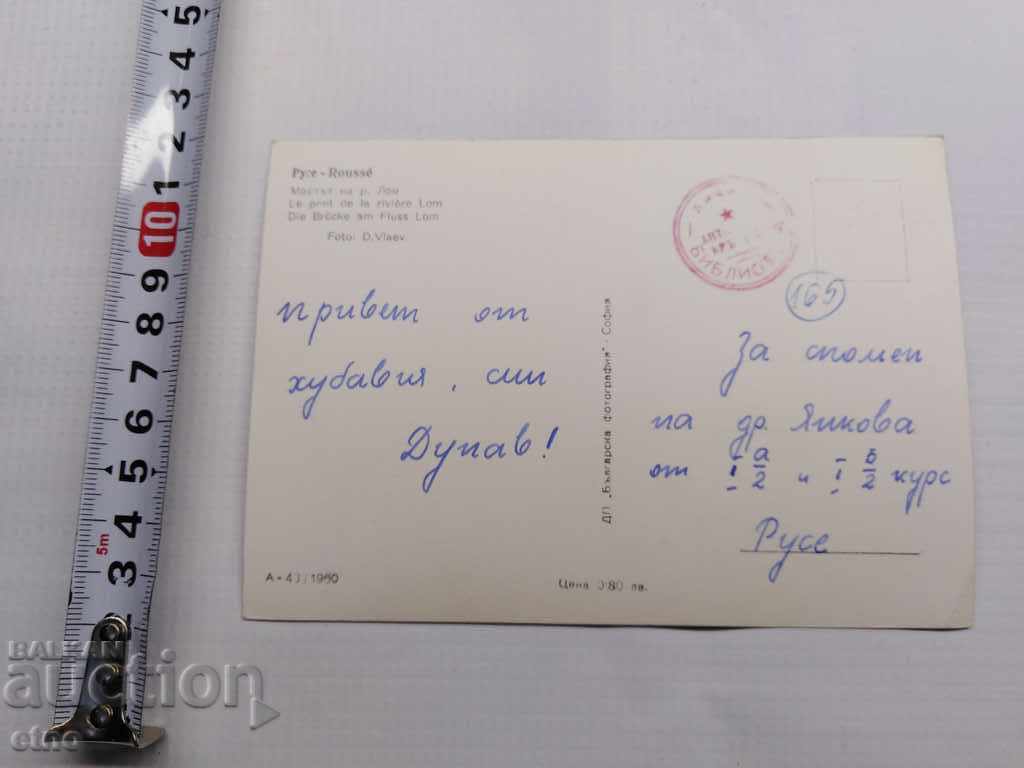 Русе - Roussé
Мостът на р. Лом
Le pont de la rivière Lom
Die Brücke am Fluss Lom
Foto: D.Vlaev
привет от
хубавия, син
Дунав!
А - 43/1960
Цена 0·80 лв.
ДП „Българска фотография" · София
БИБЛИОТЕ
165
За спомен
на др. Янкова
от I а/2 и I в/2 курс
Русе
5 4 3 2 1 10 9 8 7 6 5 4 3 2
5m
BALKAN
auction
etno